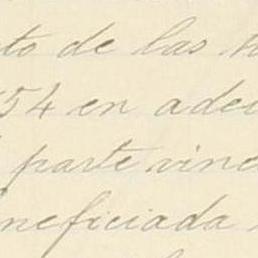 to de las
54 en ade
parte vinc
neficiada